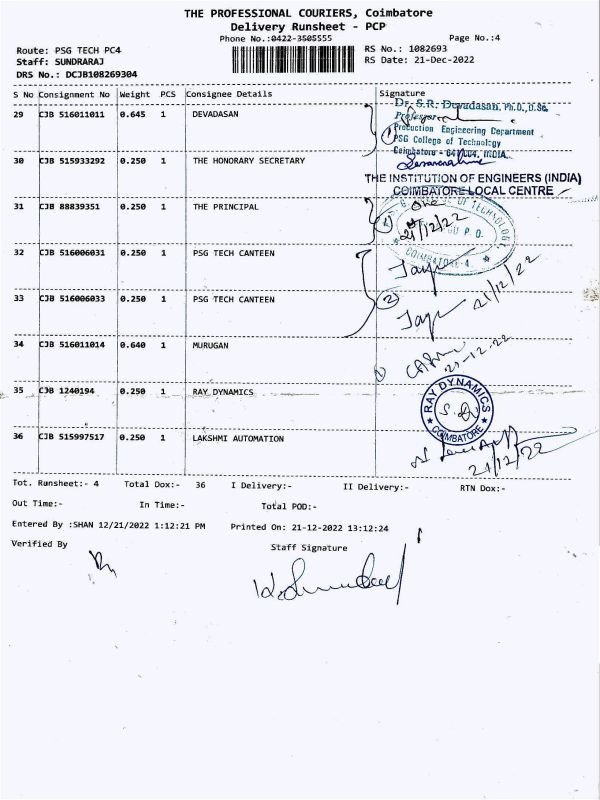 THE PROFESSIONAL COURIERS, Coimbatore
Delivery Runsheet - PCP
Phone No.:0422-3505555
Page No.:4
Route: PSG TECH PC4
RS No.: 1082693
Staff: SUNDRARAJ
RS Date: 21-Dec-2022
DRS No.: DCJB108269304
S No Consignment No Weight PCS Consignee Details Signature
29 CJB 516011011 0.645 1 DEVADASAN
Dr. S.R. Devadasan, Ph.D., D.Sc.
Professor
Production Engineering Department
PSG College of Technology
Coimbatore - 641 004, INDIA.
30 CJB 515933292 0.250 1 THE HONORARY SECRETARY
THE INSTITUTION OF ENGINEERS (INDIA)
COIMBATORE LOCAL CENTRE
31 CJB 88839351 0.250 1 THE PRINCIPAL
21/12/22
32 CJB 516006031 0.250 1 PSG TECH CANTEEN
33 CJB 516006033 0.250 1 PSG TECH CANTEEN
2
21/12/22
34 CJB 516011014 0.640 1 MURUGAN
21-12-22
35 CJB 1240194 0.250 1 RAY DYNAMICS
RAY DYNAMICS
COIMBATORE
36 CJB 515997517 0.250 1 LAKSHMI AUTOMATION
21/12/22
Tot. Runsheet:- 4 Total Dox:- 36 I Delivery:- II Delivery:- RTN Dox:-
Out Time:- In Time:- Total POD:-
Entered By :SHAN 12/21/2022 1:12:21 PM Printed On: 21-12-2022 13:12:24
Verified By Staff Signature